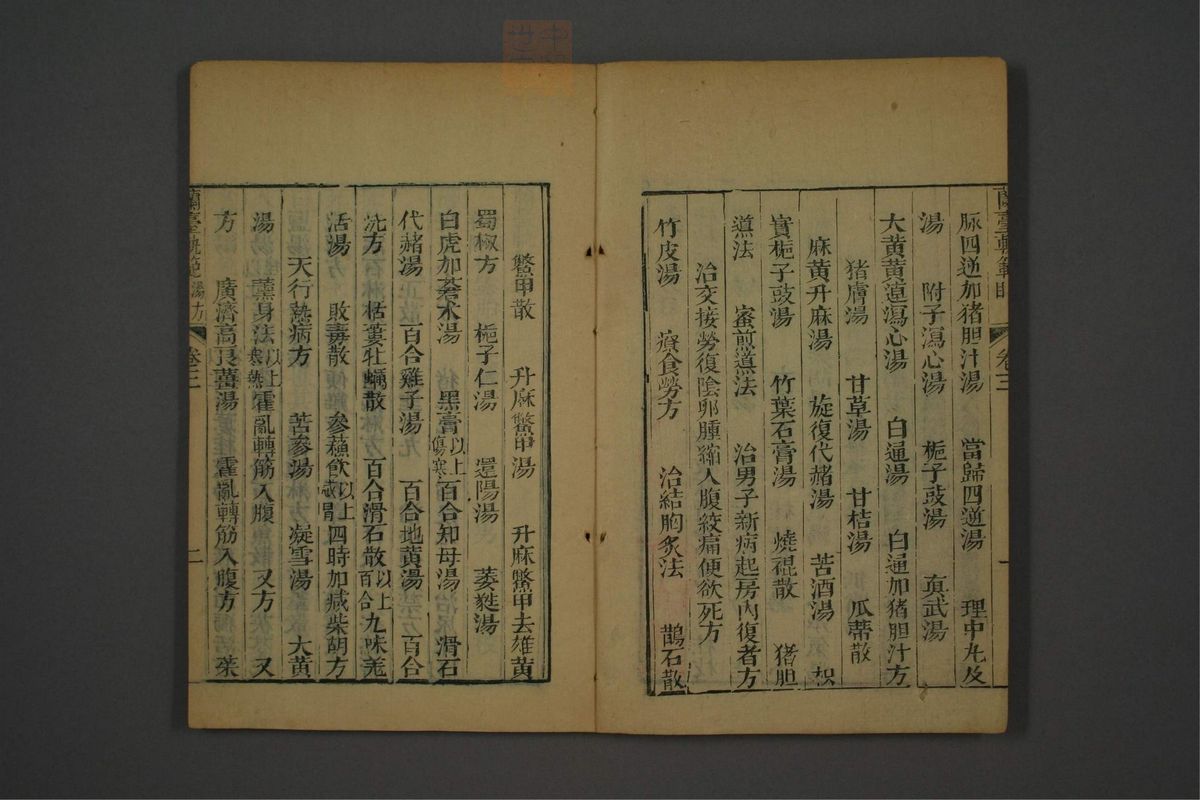 蘭臺軌範目 卷三 一
脉四逆加猪胆汁湯 當歸四逆湯 理中丸及
湯 附子瀉心湯 梔子豉湯 真武湯
大黄黄連瀉心湯 白通湯 白通加猪胆汁方
猪膚湯 甘草湯 甘桔湯 瓜蒂散
麻黄升麻湯 旋復代赭湯 苦酒湯 枳
實梔子豉湯 竹葉石膏湯 燒裩散 猪胆
導法 蜜煎導法 治男子新病起房内復者方
治交接勞復陰卵腫縮入腹絞痛便欲死方
竹皮湯 療食勞方 治結胸灸法 鵲石散
鱉甲散 升麻鱉甲湯 升麻鱉甲去雄黄
蜀椒方 梔子仁湯 還陽湯 葳蕤湯
白虎加蒼术湯 黑膏以上傷寒 百合知母湯 滑石
代赭湯 百合雞子湯 百合地黄湯 百合
洗方 栝蔞牡蠣散 百合滑石散以上百合 九味羌
活湯 敗毒散 參蘇飲以上 四時加减柴胡方
天行熱病方 苦参湯 凝雪湯 大黄
湯 薰身法以上寒熱 霍亂轉筋入腹 又方 又
方 廣濟高良薑湯 霍亂轉筋入腹方 茱
蘭臺軌範 湯方 卷三 二